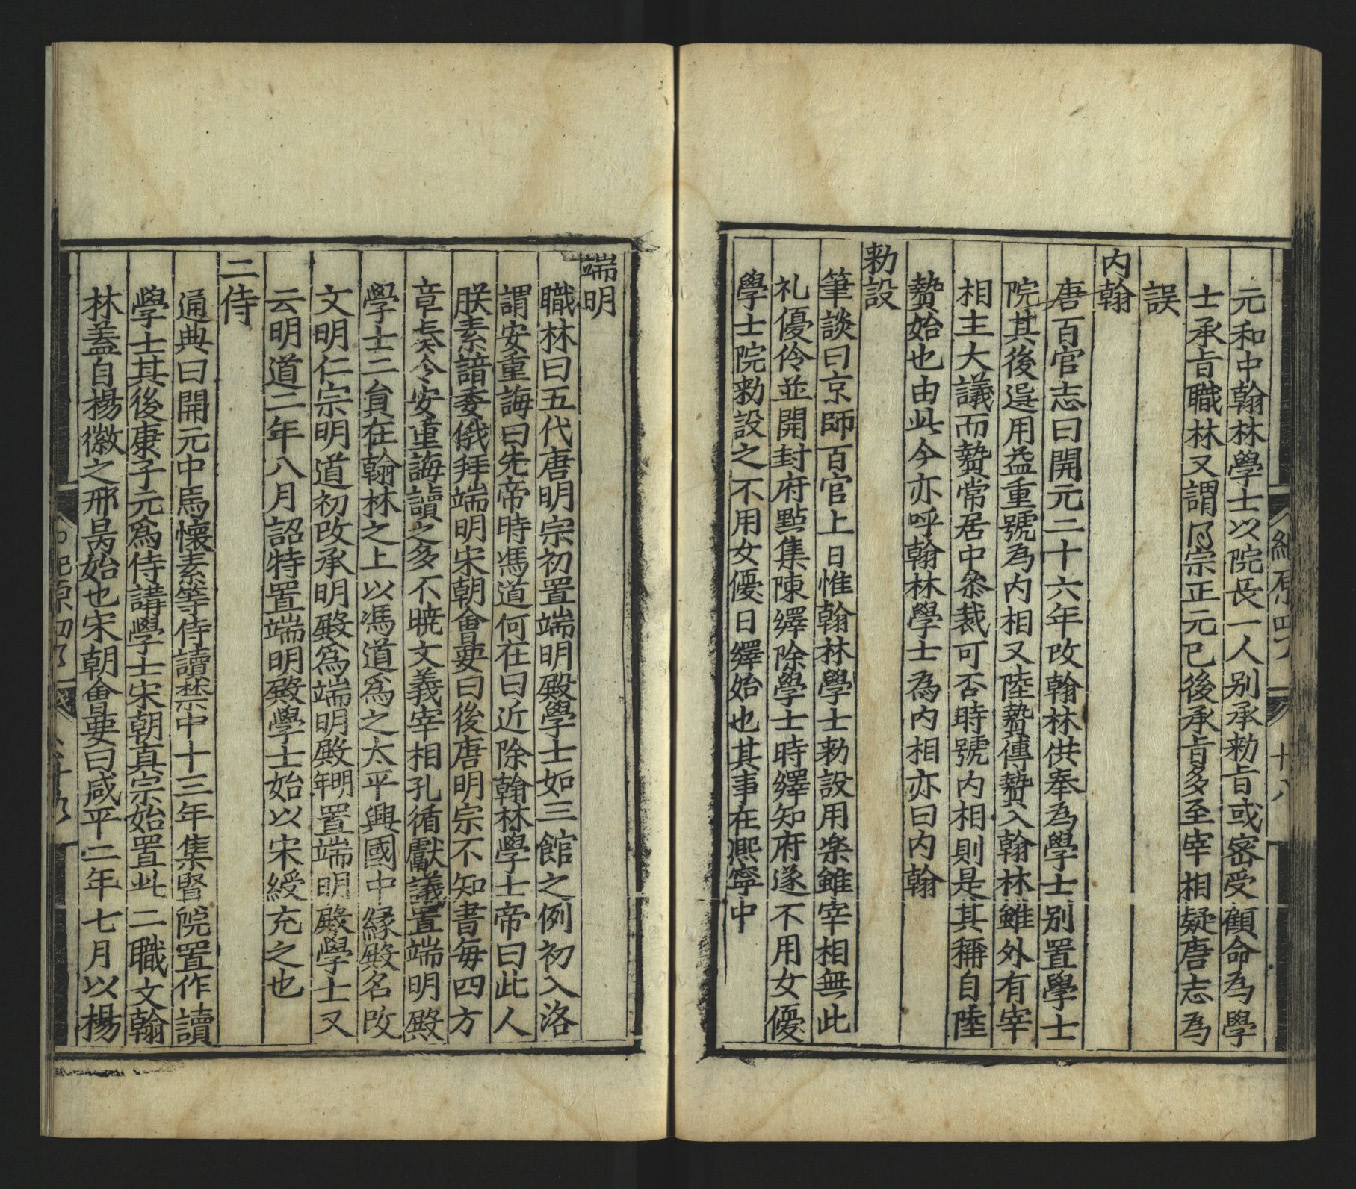 元和中翰林學士以院長一人别承勑㫖或密受顧命為學
士承㫖職林又謂憲宗正元已後承㫖多至宰相疑唐志為
誤
内翰
唐百官志曰開元二十六年改翰林供奉為學士别置學士
院其後選用益重號為内相又陸贄傳贄入翰林雖外有宰
相主大議而贄常居中叅裁可否時號内相則是其稱自陸
贄始也由此今亦呼翰林學士為内相亦曰内翰
勑設
筆談曰京師百官上日惟翰林學士勑設用楽雖宰相無此
礼優伶並開封府㸃集陳繹除學士時繹知府遂不用女優
學士院勑設之不用女優日繹始也其事在熈寧中
端明
職林曰五代唐明宗初置端明殿學士如三館之例初入洛
謂安重誨曰先帝時馮道何在曰近除翰林學士帝曰此人
朕素諳委俄拜端明宋朝㑹要曰後唐明宗不知書每四方
章奏令安重誨讀之多不曉文義宰相孔循獻議置端明殿
學士二貟在翰林之上以馮道爲之太平興國中縁殿名改
文明仁宗明道初改承明殿爲端明殿輙置端明殿學士又
云明道二年八月詔特置端明殿學士始以宋綬充之也
二侍
通典曰開元中馬懐素等侍讀禁中十三年集賢院置作讀
學士其後康子元爲侍講學士宋朝真宗始置此二職文翰
林蓋自楊徽之邢昺始也宋朝㑹要曰咸平二年七月以楊